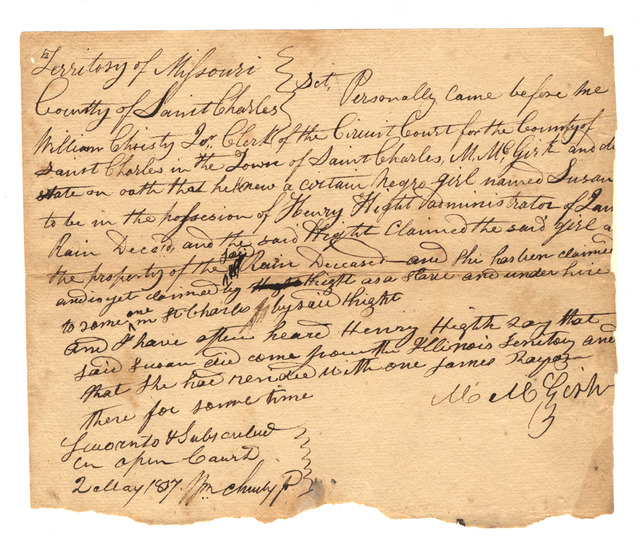 Territory of Missouri
County of Saint Charles } Sct, Personally came before me
William Christy Jor. Clerk of the Circuit Court for the County of
Saint Charles in the Town of Saint Charles, M. McGirk and do
state on oath that he knew a certain Negro girl named Susan
to be in the possesion of Henry Hight administrator of
Rain Decsd, and the said Hight Claimed the said girl a
the property of the said Rain Deceased and she has been claimed
and is yet claimed by Hight as a Slave and under hire
to some one in St Charles by said Hight
and I have often heard Henry Higth say that
said Susan did come from the Illinois Territory and
that she had resided with one James
there for some time
M McGirk
Sworn to & Subscribed
in open Court
2 May 1817 Wm Christy Jr